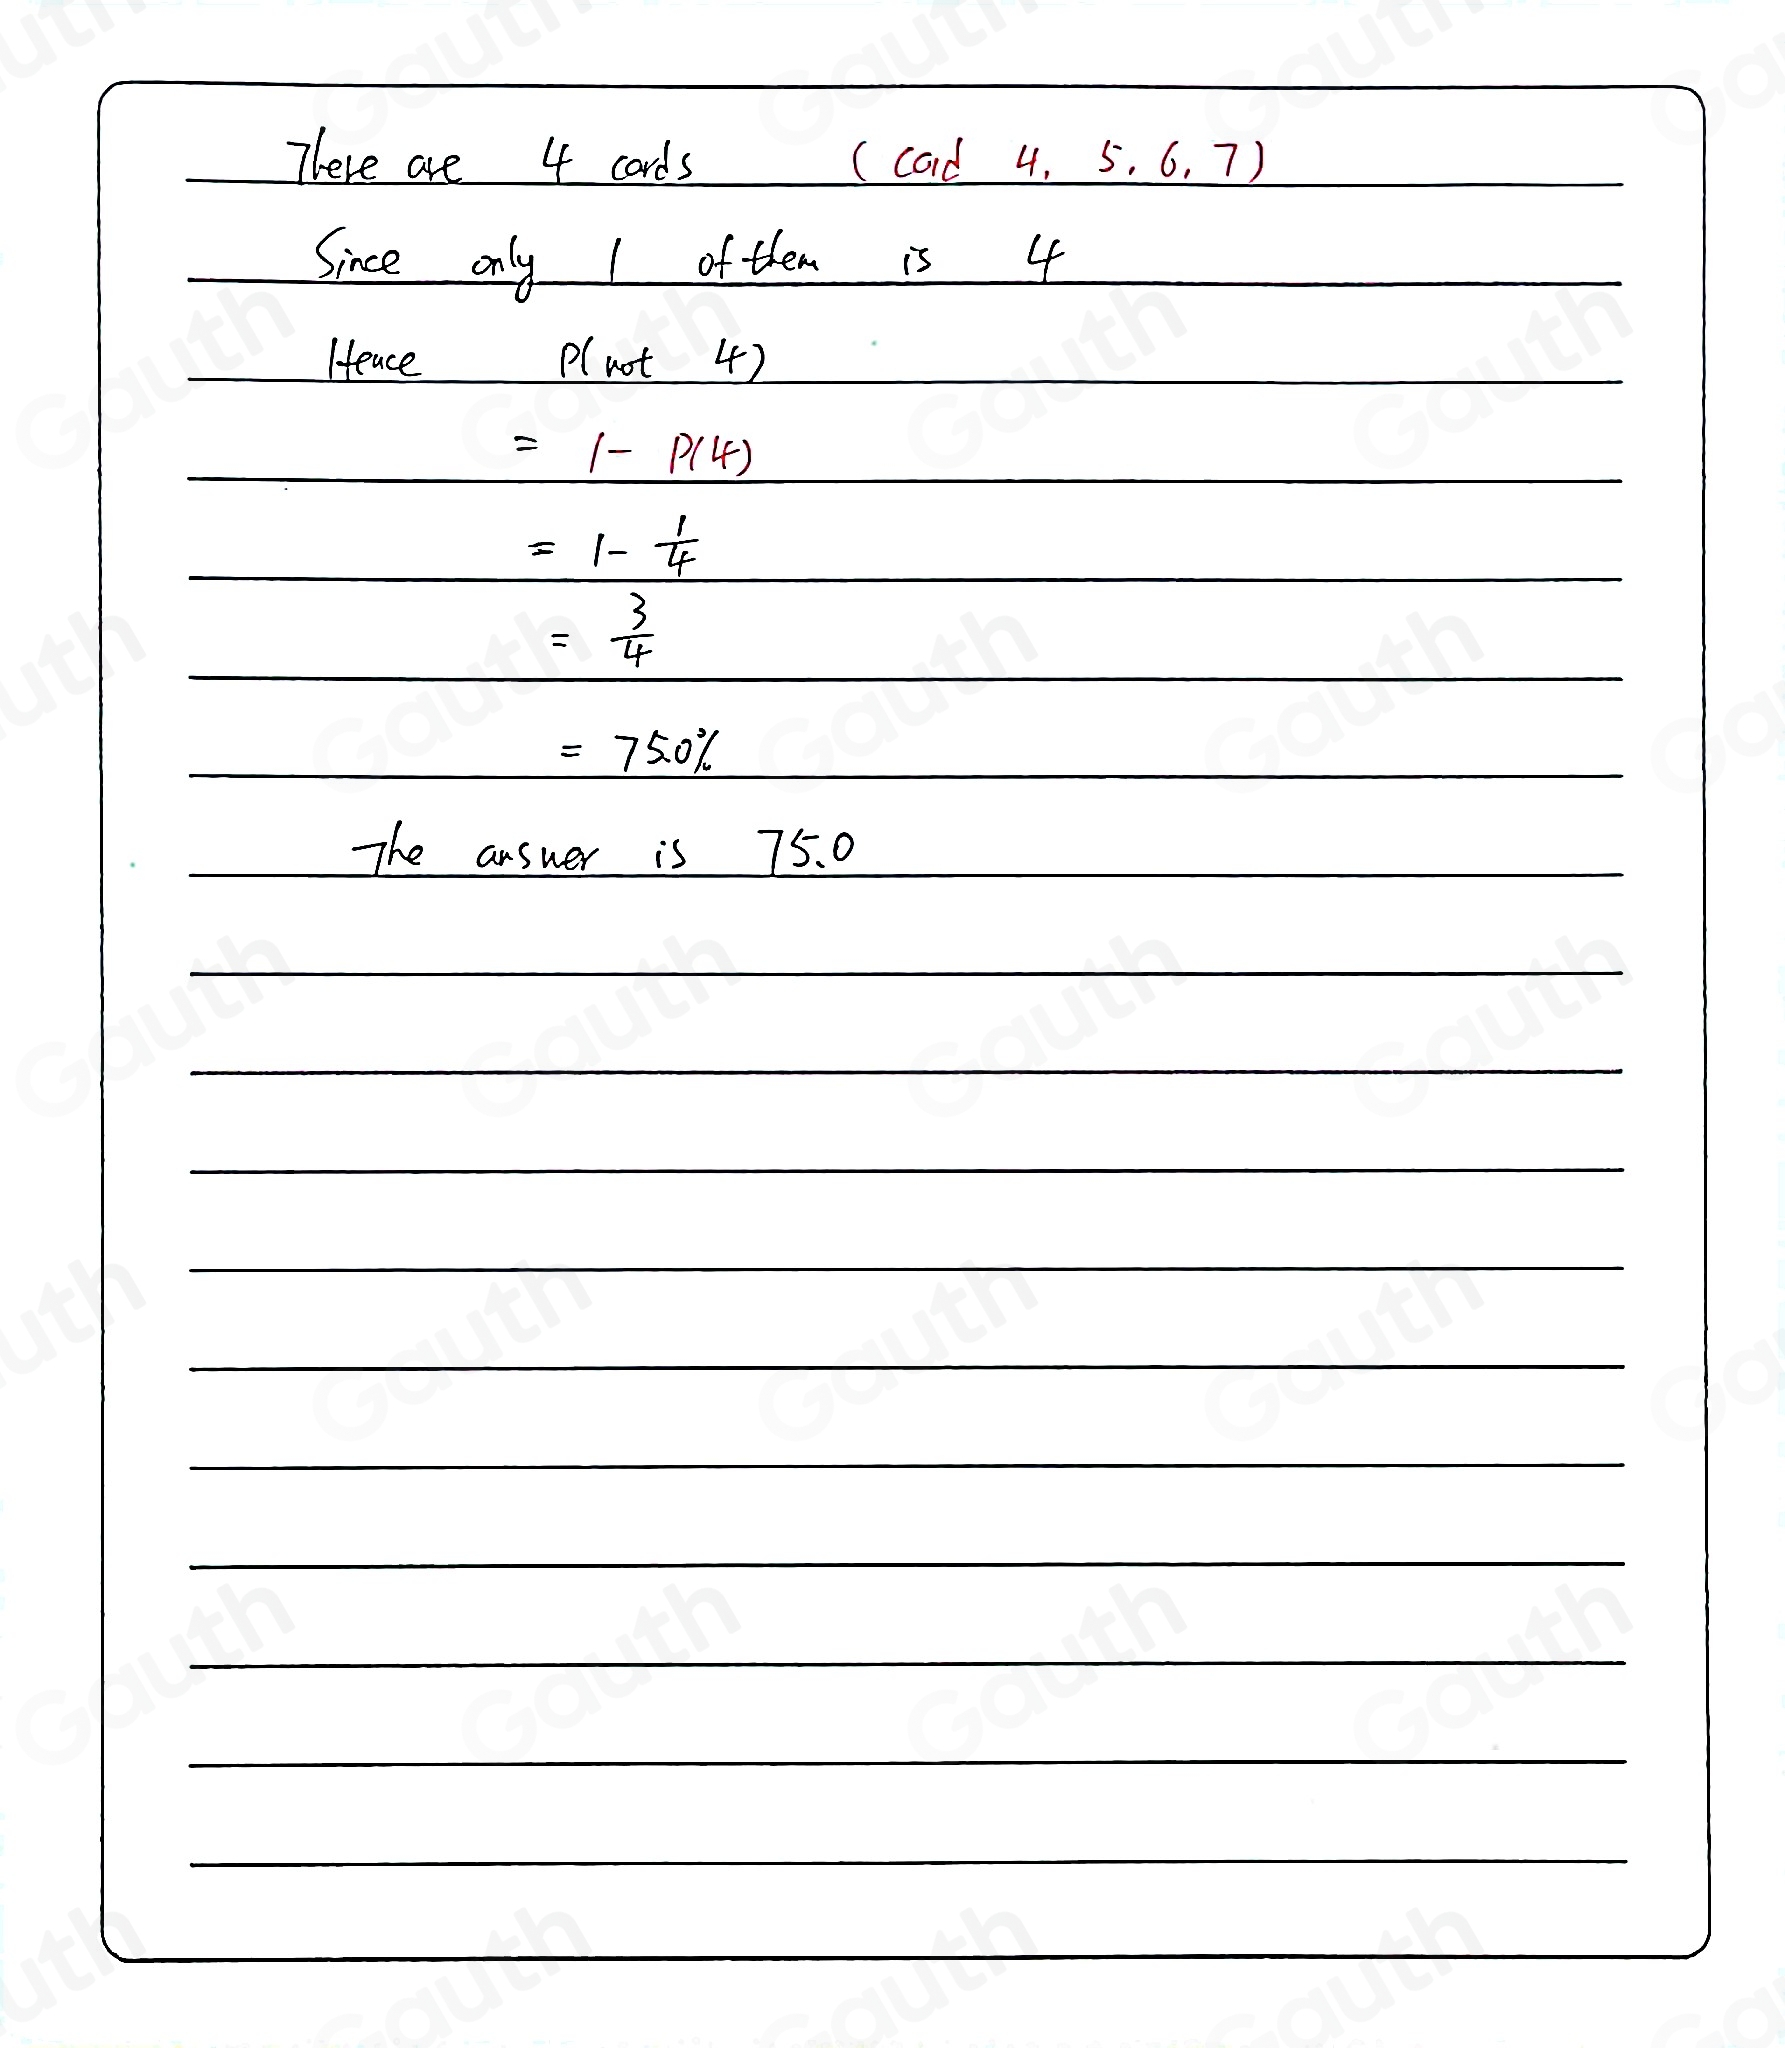 There are 4 cards (card 4, 5, 6, 7)
Since only 1 of them is 4
Hence P(not 4)
= 1 - P(4)
= 1 - 1/4
= 3/4
= 75.0%
The answer is 75.0